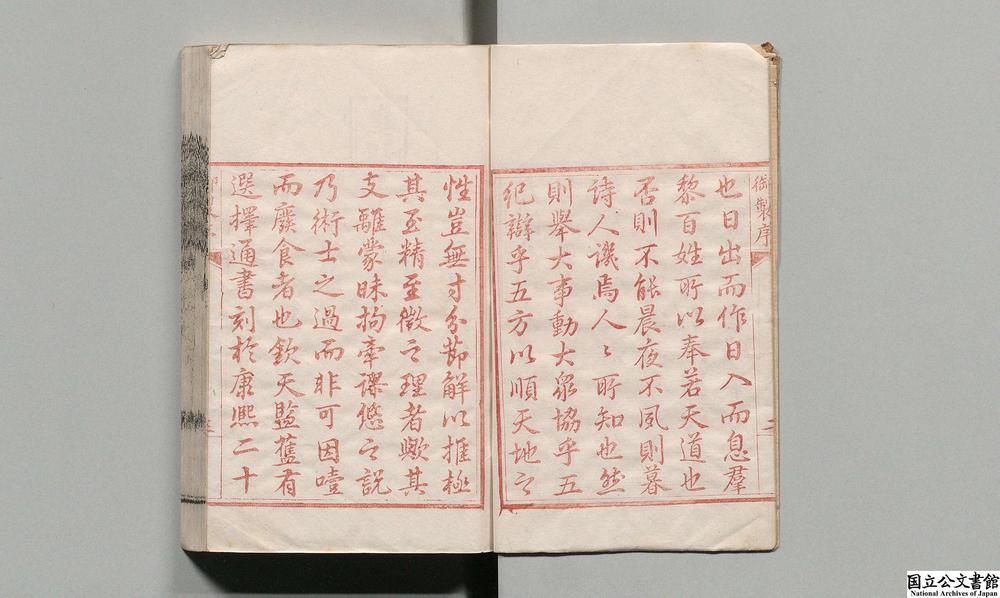 御製序
二
也日出而作日入而息羣
黎百姓所以奉若天道也
否則不能晨夜不夙則暮
詩人譏焉人〻所知也然
則舉大事動大衆協乎五
紀辯乎五方以順天地之
性豈無寸分節解以推極
其至精至微之理者歟其
支離蒙昧拘牽謬悠之說
乃術士之過而非可因噎
而廢食者也欽天監舊有
選擇通書刻於康熙二十
国立公文書館
National Archives of Japan